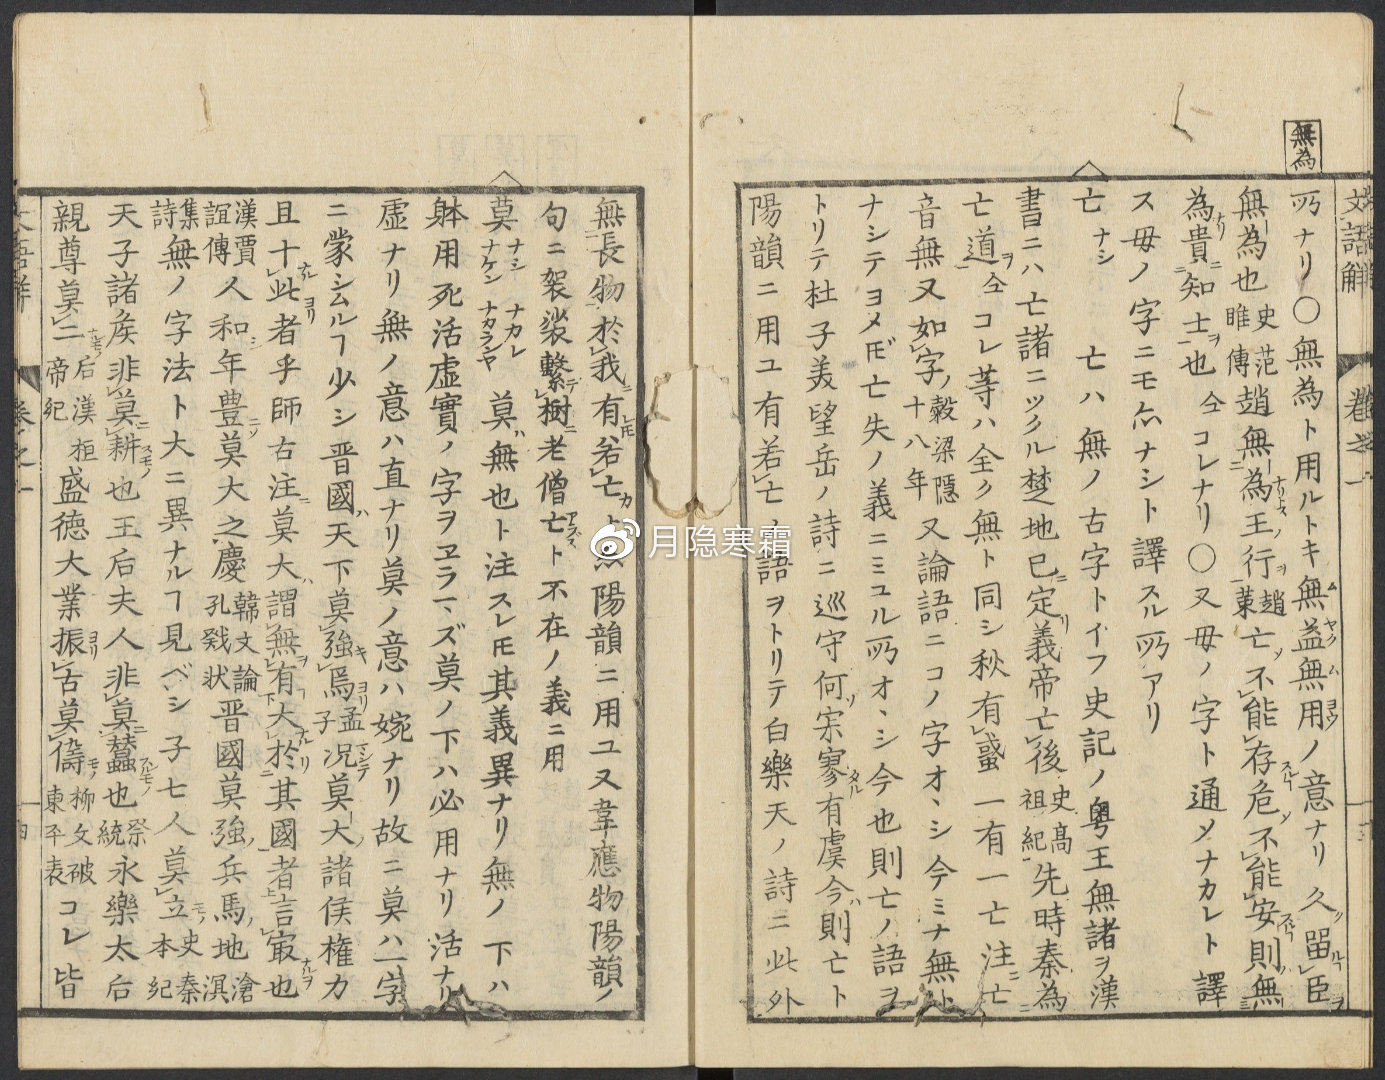 無為
文語解 卷之一
所ナリ〇無為ト用ルトキ無益無用ノ意ナリ久留臣
無為也史范睢傳趙無為王行趙策亡不能存危不能安則無
為貴知士也仝コレナリ〇又毋ノ字ト通メナカレト譯
ス毋ノ字ニモ尓ナシト譯スル所アリ
亡ナシ 亡ハ無ノ古字トイフ史記ノ粤王無諸ヲ漢
書ニハ亡諸ニツクル楚地已定義帝亡後史高祖紀先時秦為
亡道仝コレ等ハ全ク無ト同シ秋有蜚一有一亡注ニ亡
音無又如字穀梁隱十八年又論語ニコノ字オヽシ今ミナ無ト
ナシテヨメ𪜈亡失ノ義ニミユル所オヽシ今也則亡ノ語ヲ
トリテ杜子美望岳ノ詩ニ巡守何寂寥有虞今則亡ト
陽韻ニ用ユ有若亡ノ語ヲトリテ白樂天ノ詩ニ此外
無長物於我有若亡 陽韻ニ用ユ又韋應物陽韻ノ
句ニ袈裟繫樹老僧亡ト不在ノ義ニ用
莫ナシ ナカレ ナケン ナカランヤ 莫無也ト注スレ𪜈其義異ナリ無ノ下ハ
躰用死活虛實ノ字ヲヱラハズ莫ノ下ハ必用ナリ活ナリ
虛ナリ無ノ意ハ直ナリ莫ノ意ハ婉ナリ故ニ莫ハ一字
ニ蒙シムルヿ少シ晋國天下莫強焉孟子況莫大諸侯權力
且十此者乎師古注莫大謂無有大於其國者言最也
漢賈誼傳人和年豊莫大之慶韓文論孔戣状晋國莫強兵馬地滄溟
集詩無ノ字法ト大ニ異ナルヿ見ベシ子七人莫立史秦本紀
天子諸矦非莫耕也王后夫人非莫蠶也祭統永樂太后
親尊莫二后漢桓帝紀盛徳大業振古莫儔柳文破東平表コレ皆
月隐寒霜